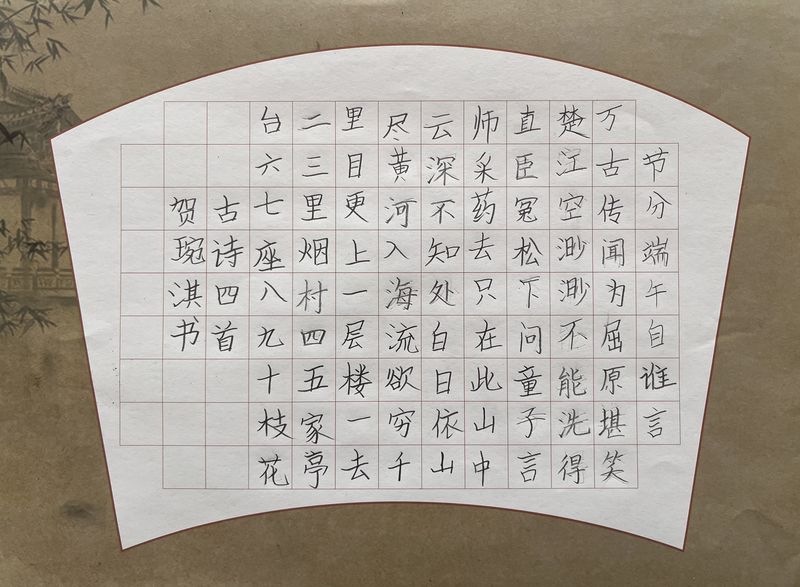 节分端午自谁言
万古传闻为屈原堪笑
楚江空渺渺不能洗得
直臣冤松下问童子言
师采药去只在此山中
云深不知处白日依山
尽黄河入海流欲穷千
里目更上一层楼一去
二三里烟村四五家亭
台六七座八九十枝花
古诗四首
贺琬淇书